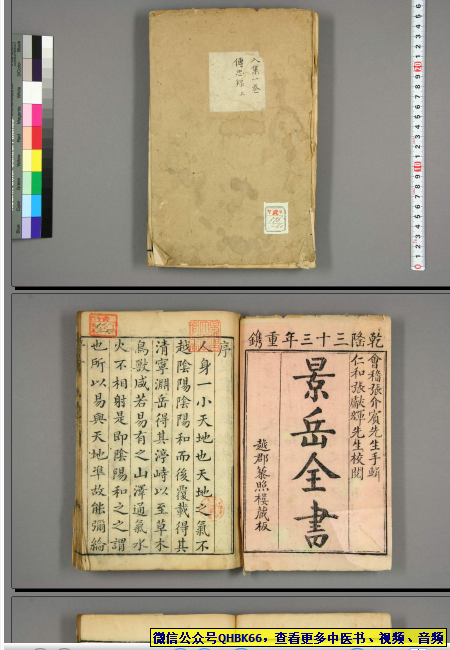 入集一卷
傳忠録 上
乾隆三十三年重鐫
會稽張介賓先生手輯
仁和張獻輝先生校閱
景岳全書
越郡藜照樓藏板
序
人身一小天地也天地之氣不
越陰陽陰陽和而後覆載得其
清寧淵岳得其渟峙以至草木
鳥獸咸若易有之山澤通氣水
火不相射是即陰陽和之之謂
也所以易與天地準故能彌綸
微信公众号QHBK66，查看更多中医书、视频、音频